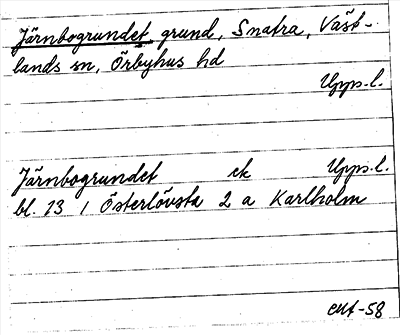 Järnbogrundet, grund, Snatra, Väst-
lands sn, Örbyhus hd
Upps.l.
Järnbogrundet ek Upps.l.
bl. 13 / Österlövsta 2 a Karlholm
-58